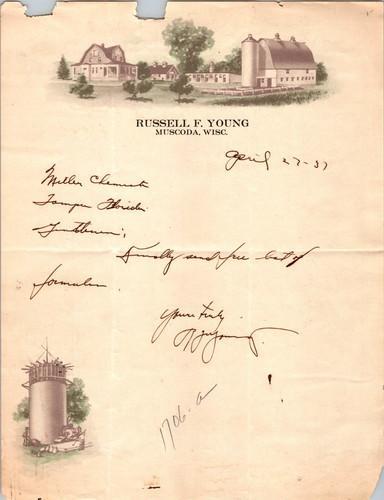 RUSSELL F. YOUNG
MUSCODA, WISC.
April 27-37
Miller Chemical
Tampa Florida
Gentlemen;
Kindly send free list of
formulas.
Yours truly
R.F. Young.
1706-a